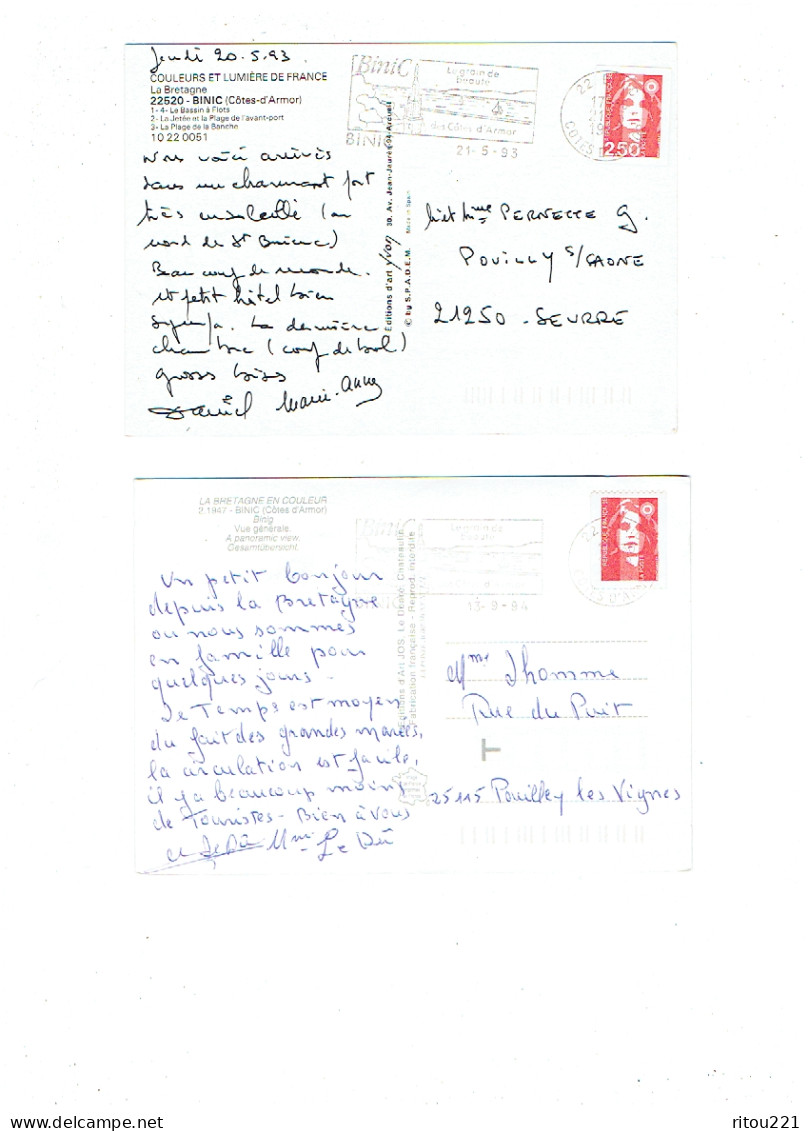 Jeudi 20.5.93
COULEURS ET LUMIÈRE DE FRANCE
La Bretagne
22520 - BINIC (Côtes-d'Armor)
1 - 4- Le Bassin à Flots
2 - La Jetée et la Plage de l'avant-port
3- La Plage de la Banche
10 22 0051
Nous voici arrivés
dans un charmant port
très ensoleillé (au
nord de St Brieuc)
Beaucoup de monde.
et petit hôtel bien
sympa. La dernière
chambre (coup de bol)
grosses bises
Daniel Marie-Anne
Editions d'art yvon 30, Av. Jean-Jaurès 94-Arcueil
© by S.P.A.D.E.M. Made in Spain
BiniC
BINIC
Le grain de
Beauté
des Côtes d'Armor
21-5-93
22
17
21
19
COTES D
2,50
PERNETTE G.
POUILLY S/SAONE
21250 - SEURRE
LA BRETAGNE EN COULEUR
2.1947 - BINIC (Côtes d'Armor)
Binig
Vue générale.
A panoramic view.
Gesamtübersicht.
Un petit bonjour
depuis la Bretagne
ou nous sommes
en famille pour
quelques jours -
Le Temps est moyen
du fait des grandes marées,
la circulation est facile,
il y a beaucoup moins
de Touristes - Bien à vous
Mme Le Dû
Editions d'Art JOS, Le Doaré, Chateaulin
Fabrication française - Reprod. interdite
BiniC
BINIC
Le grain de
Beauté
13-9-94
22
REPUBLIQUE FRANCAISE
LA POSTE
Mme Jhomme
Rue du Puit
T
25115 Pouilley les Vignes
ritou221